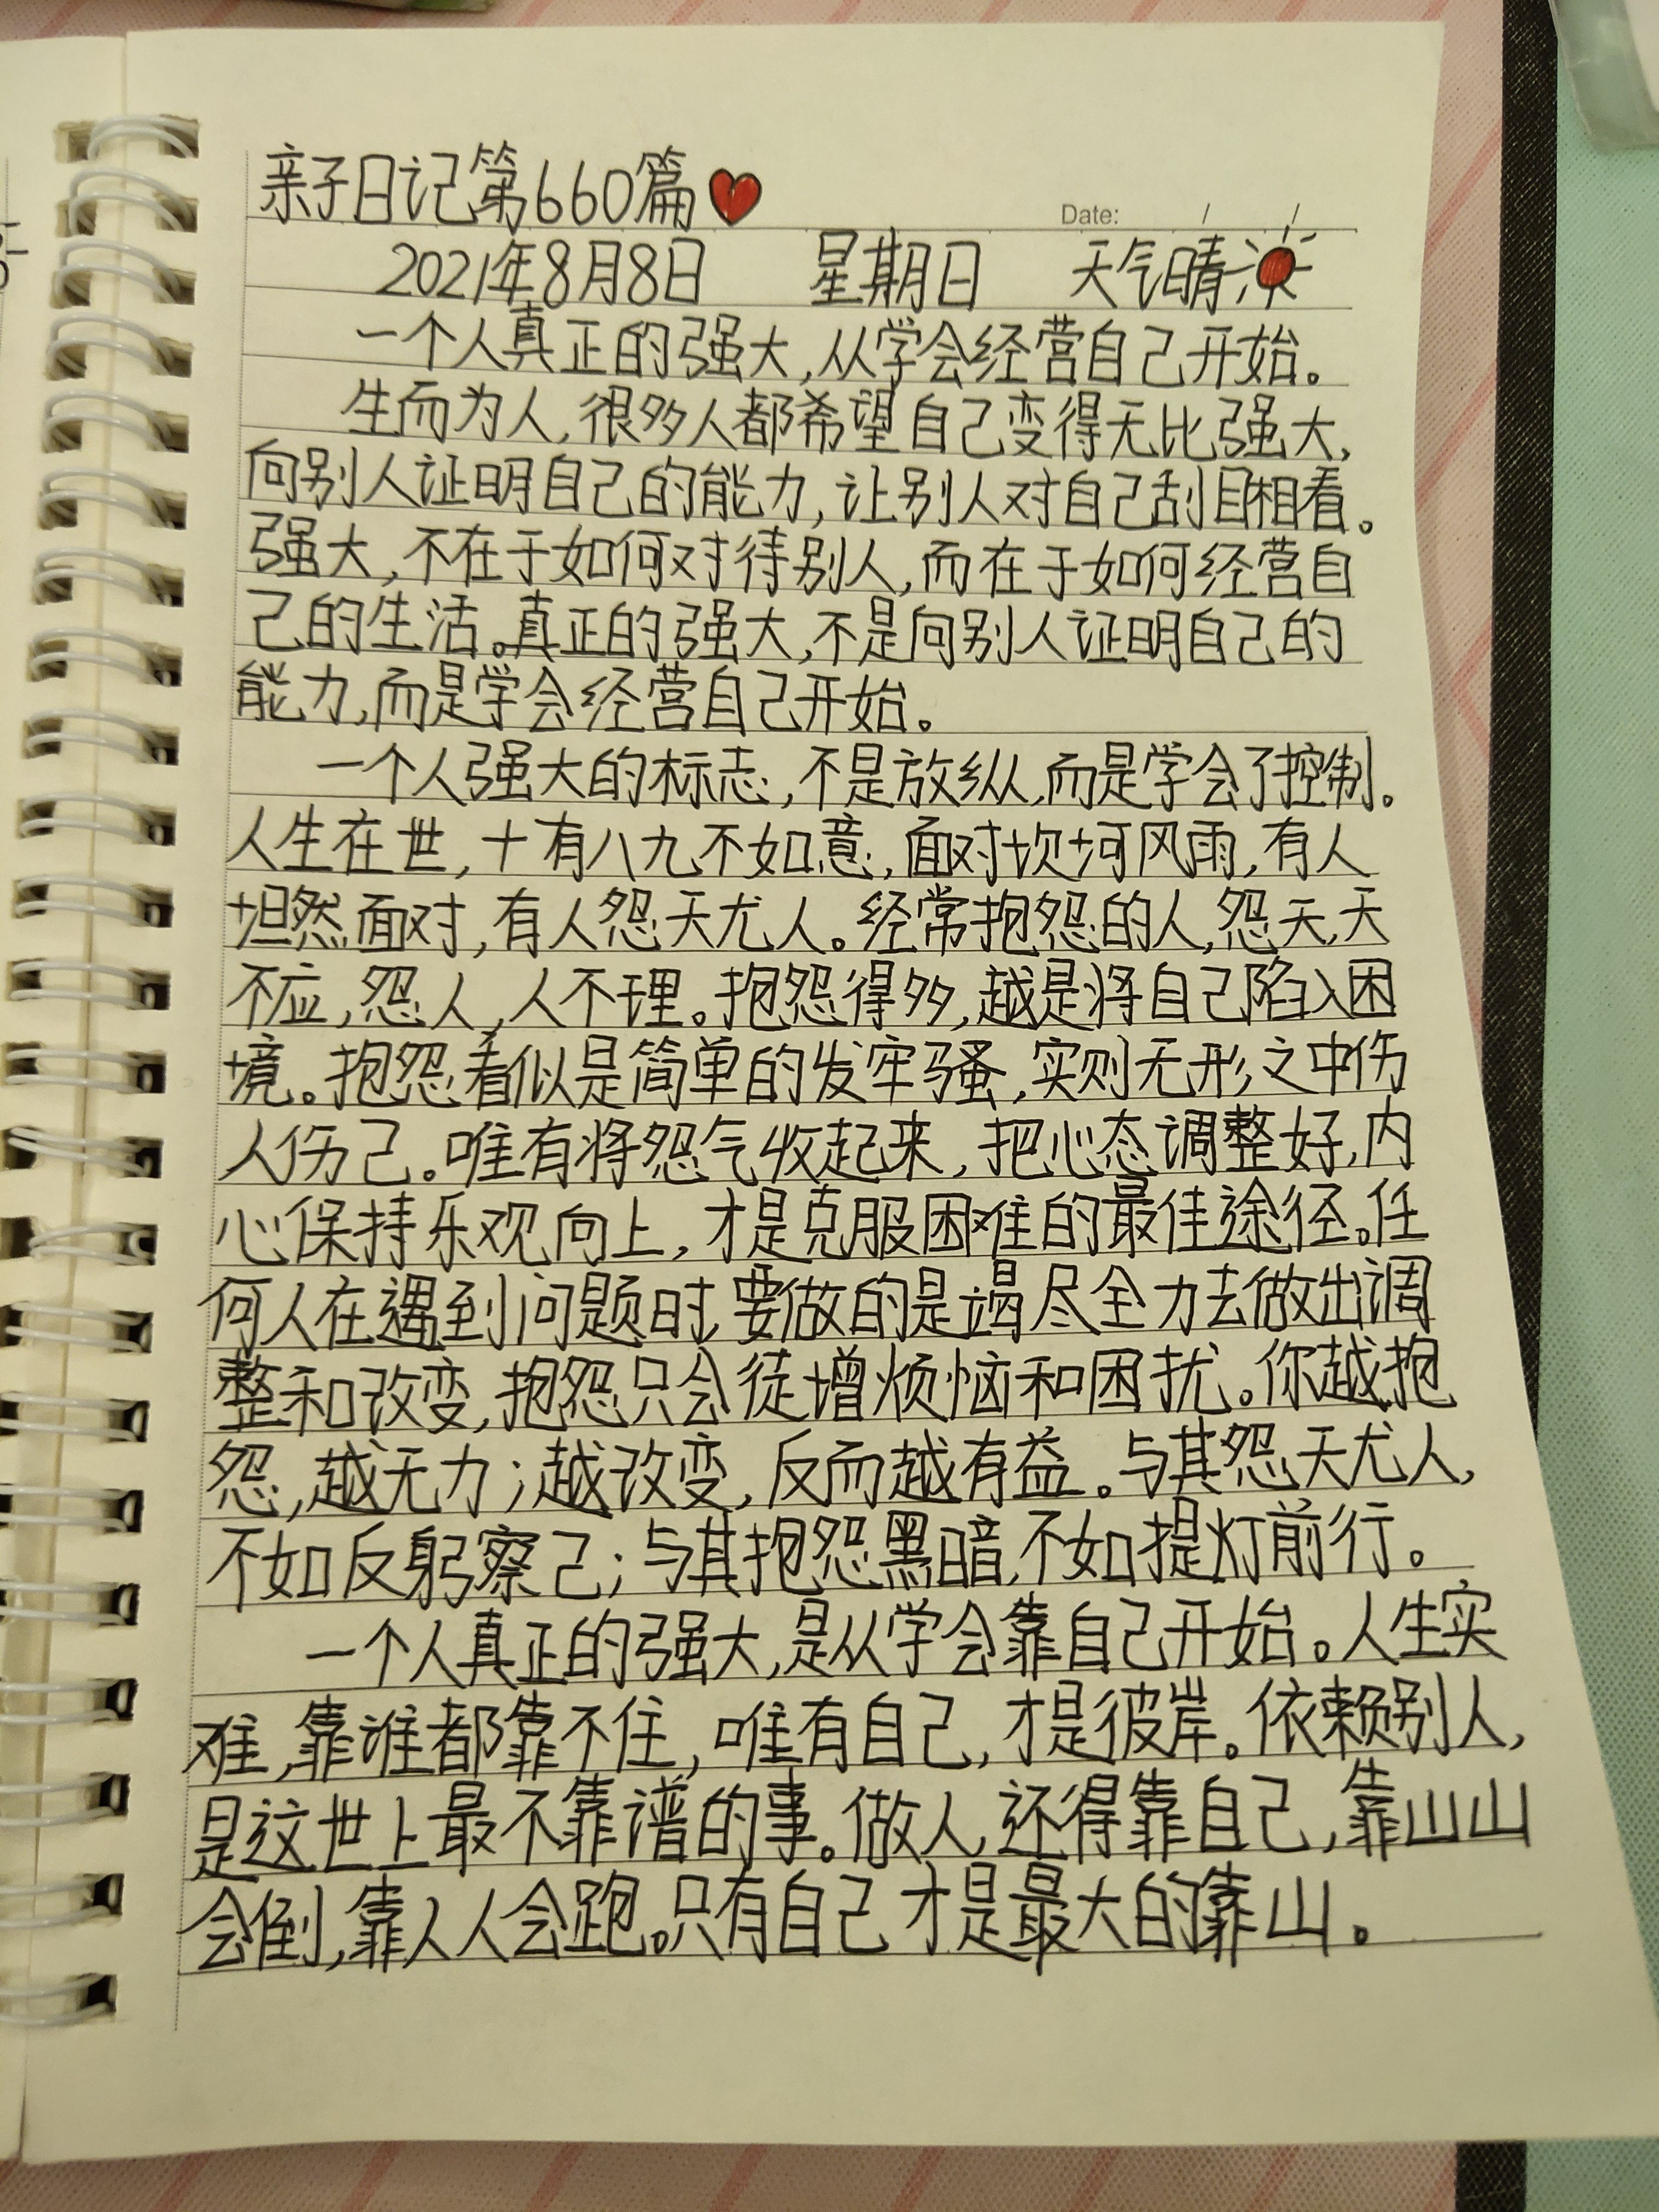 亲子日记第660篇
Date: / /
2021年8月8日 星期日 天气晴
一个人真正的强大,从学会经营自己开始。
生而为人,很多人都希望自己变得无比强大,
向别人证明自己的能力,让别人对自己刮目相看。
强大,不在于如何对待别人,而在于如何经营自
己的生活。真正的强大,不是向别人证明自己的
能力,而是学会经营自己开始。
一个人强大的标志,不是放纵,而是学会了控制。
人生在世,十有八九不如意,面对坎坷风雨,有人
坦然面对,有人怨天尤人。经常抱怨的人,怨天,天
不应,怨人,人不理。抱怨得多,越是将自己陷入困
境。抱怨看似是简单的发牢骚,实则无形之中伤
人伤己。唯有将怨气收起来,把心态调整好,内
心保持乐观向上,才是克服困难的最佳途径。任
何人在遇到问题时,要做的是竭尽全力去做出调
整和改变,抱怨只会徒增烦恼和困扰。你越抱
怨,越无力;越改变,反而越有益。与其怨天尤人,
不如反躬察己;与其抱怨黑暗,不如提灯前行。
一个人真正的强大,是从学会靠自己开始。人生实
难,靠谁都靠不住,唯有自己,才是彼岸。依赖别人,
是这世上最不靠谱的事。做人,还得靠自己,靠山山
会倒,靠人人会跑。只有自己才是最大的靠山。